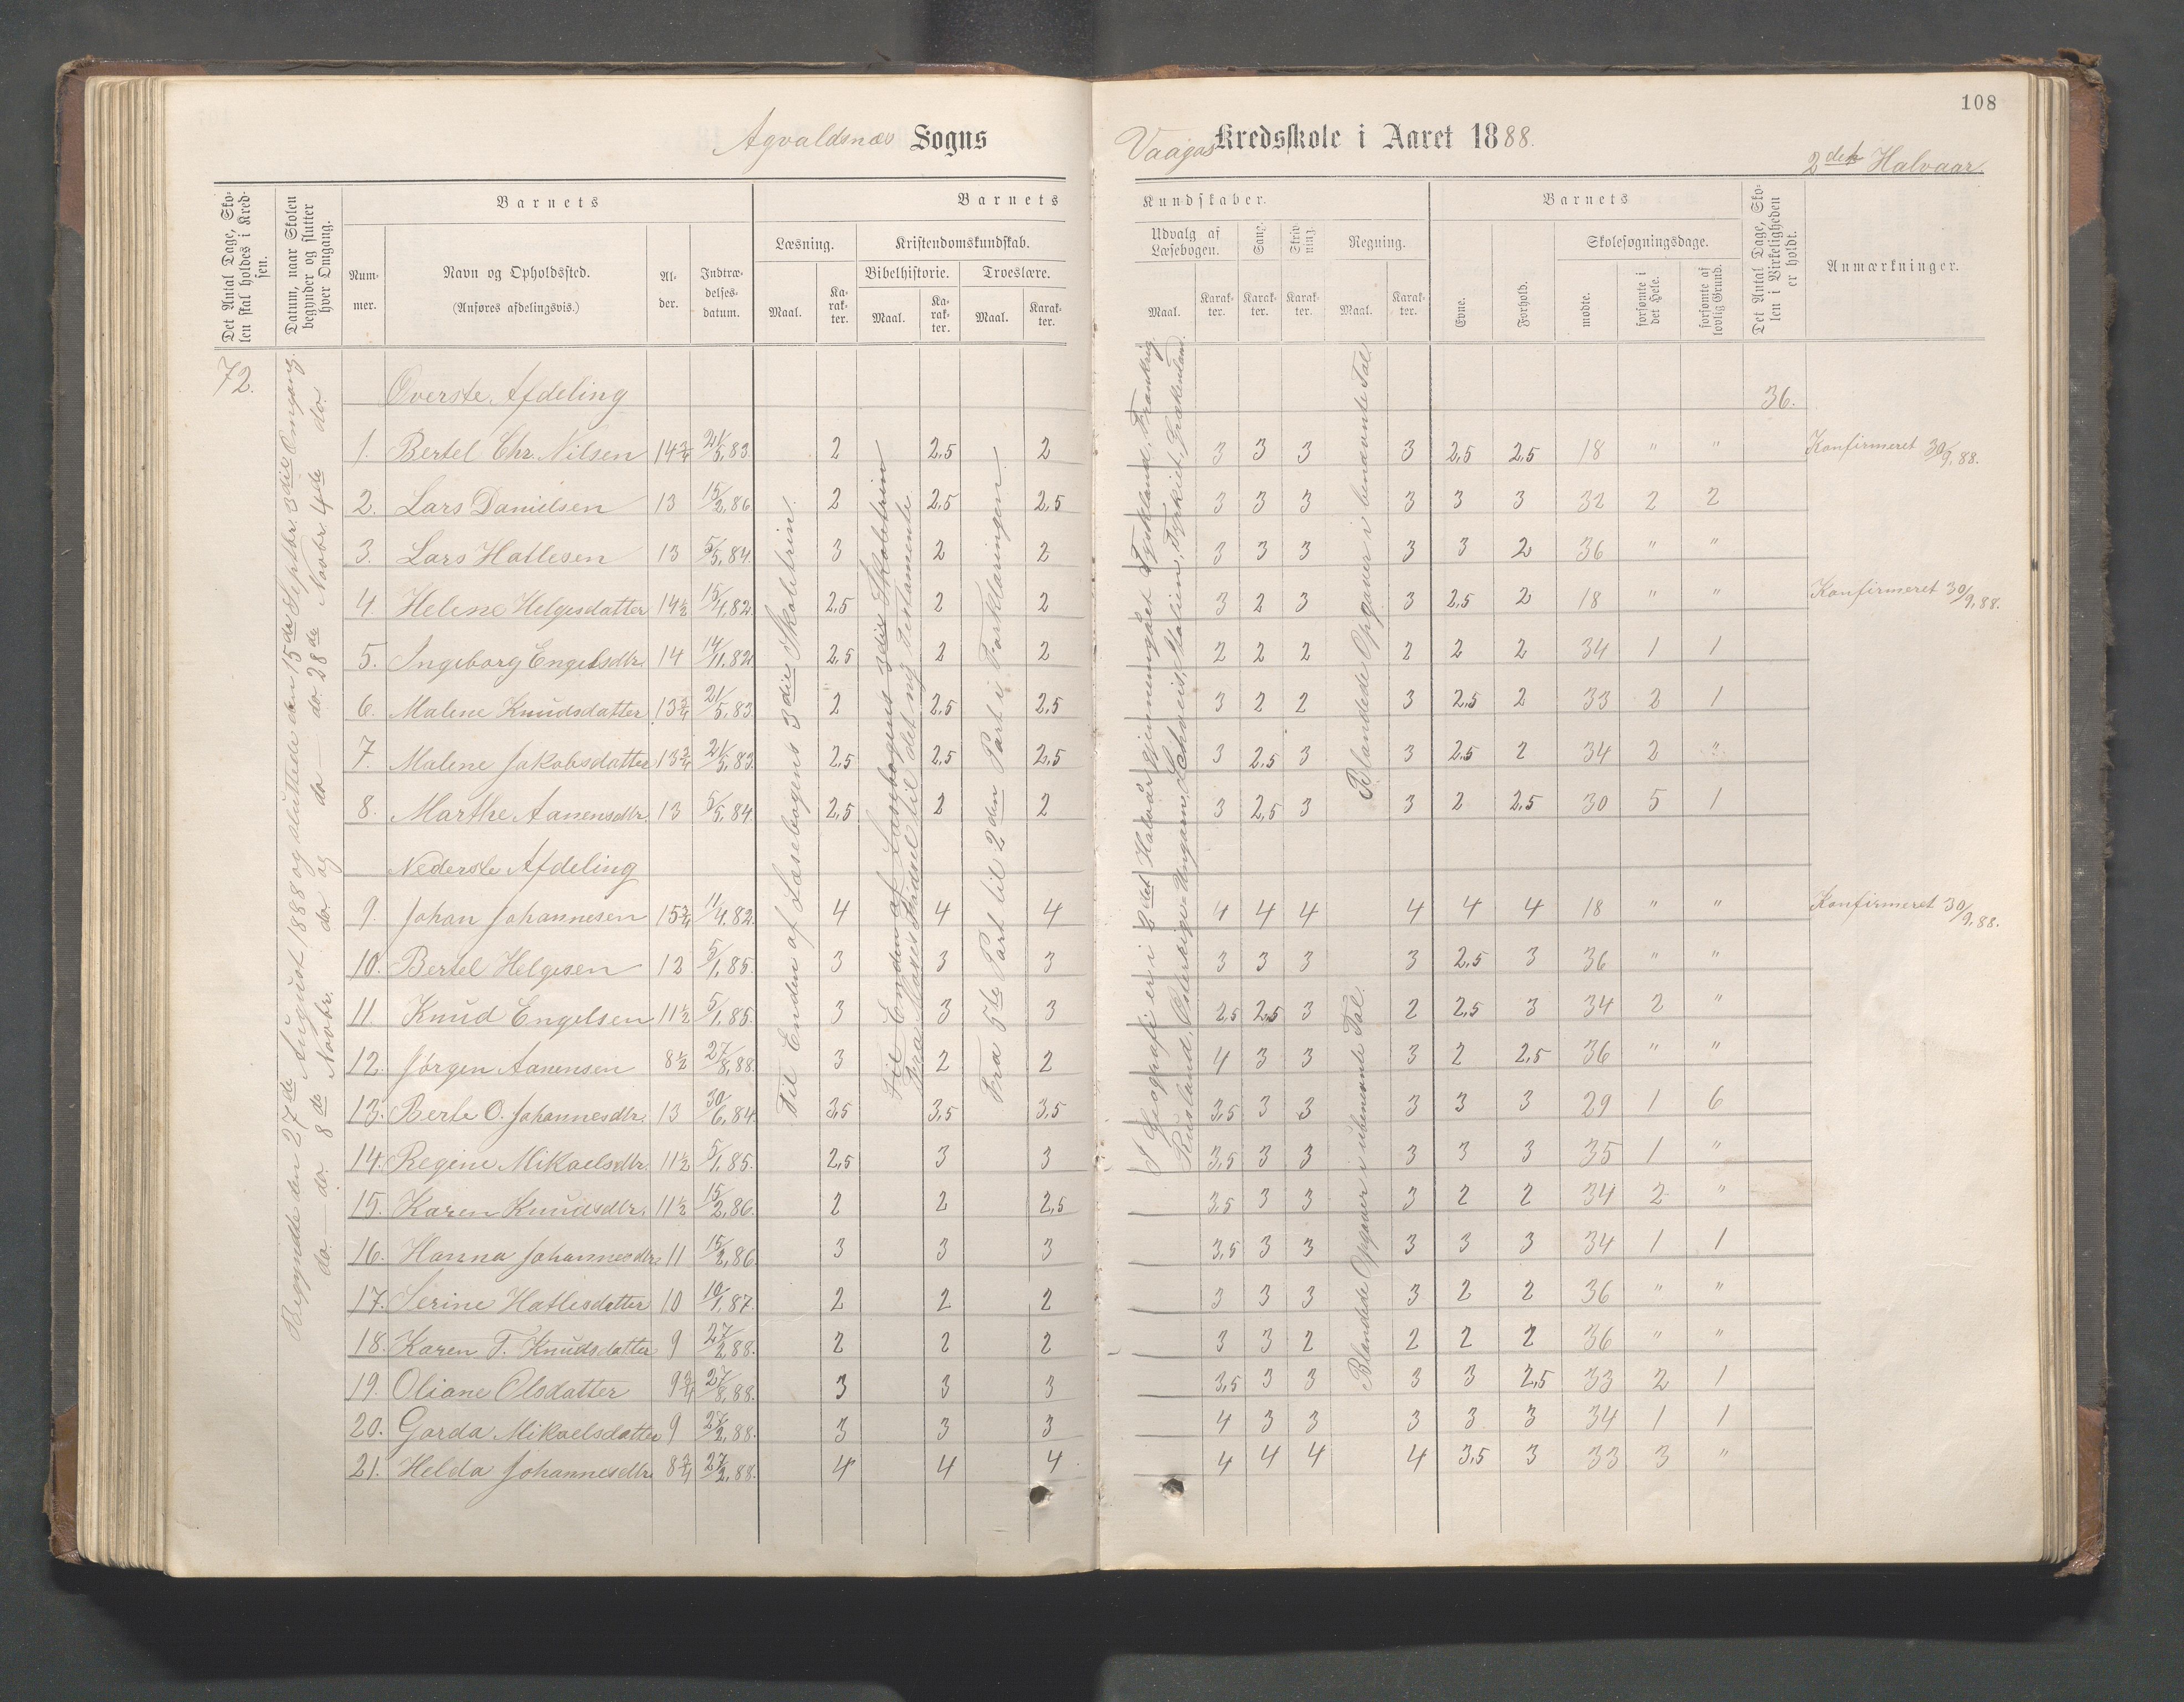 108
Agvaldsnæs Sogns
Vaagas Kredsskole i Aaret 1888.
2det Halvaar.
Det Antal Dage, Skolen skal holdes i Kredsen.
Datum, naar Skolen begynder og slutter hver Omgang.
Barnets
Nummer.
Navn og Opholdssted.
(Anføres afdelingsvis.)
Alder.
Indtrædelsesdatum.
Barnets
Kundskaber.
Læsning.
Maal.
Karakter.
Kristendomskundskab.
Bibelhistorie.
Maal.
Karakter.
Troeslære.
Maal.
Karakter.
Udvalg af Læsebogen.
Maal.
Karakter.
Sang.
Karakter.
Skrivning.
Karakter.
Regning.
Maal.
Karakter.
Barnets
Evne.
Forhold.
Skolesøgningsdage.
mødte.
forsømte i det Hele.
forsømte af lovlig Grund.
Det Antal Dage, Skolen i Virkeligheden er holdt.
Anmærkninger.
72.
Begyndte den 27de August 1888 og sluttede den 15de Septbr. 3die Omgang.
do. — do. 8de Novbr. do og do — do. 28de Novbr. 4de do.
Til Enden af Læsebogens 3die Skoletrin.
Til Enden af Læsebogens 3die Skoletrin
Fra Moses Fødsel til det ny Testamente.
Fra 5te Part til 2den Part i Forklaringen.
I Geografi er i 2det Halvår gjennemgået Tyskland, Frankrig
Rusland, Østerrige-Ungarn, Schweis, Italien, Tyrkiet, Grækenland.
Blandede Opgaver i benævnte Tal
Blandede Opgaver i ubenævnte Tal.
Øverste Afdeling 36.
1. Bertel Chr. Nilsen 14 3/4 21/5,83. 2 2,5 2 3 3 3 3 2,5 2,5 18 " " Konfirmeret 30/9,88.
2. Lars Danielsen 13 15/2,86 2 2,5 2,5 3 3 3 3 3 3 32 2 2
3. Lars Hatlesen 13 5/5,84. 3 2 2 3 3 3 3 3 2 36 " "
4. Helene Helgesdatter 14 1/2 15/4,82. 2,5 2 2 3 2 3 3 2,5 2 18 " " Konfirmeret 30/9,88.
5. Ingeborg Engelsdtr. 14 14/11,82. 2,5 2 2 2 2 2 2 2 2 34 1 1
6. Malene Knudsdatter 13 3/4 21/5,83 2 2,5 2,5 3 2 2 3 2,5 2 33 2 1
7. Malene Jakobsdatter 13 3/4 21/5,83. 2,5 2,5 2,5 3 2,5 3 3 2,5 2 34 2
8. Marthe Aanensdtr. 13 5/5,84. 2,5 2 2 3 2,5 3 3 2 2,5 30 5 1
Nederste Afdeling
9. Johan Johannesen 15 3/4 11/4,82. 4 4 4 4 4 4 4 4 4 18 " " Konfirmeret 30/9,88.
10. Bertel Helgesen 12 5/1,85. 3 3 3 3 3 3 3 2,5 3 36 " "
11. Knud Engelsen 11 1/2 5/1,85. 3 3 3 2,5 2,5 3 2 2,5 3 34 2 "
12. Jørgen Aanensen 8 1/2 27/8,88. 3 2 2 4 3 3 3 2 2,5 36 " "
13. Berte O. Johannesdtr. 13 30/6,84. 3,5 3,5 3,5 3,5 3 3 3 3 3 29 1 6
14. Regine Mikaelsdtr. 11 1/2 5/1,85. 2,5 3 3 3,5 3 3 3 3 3 35 1 "
15. Karen Knudsdtr. 11 1/2 15/2,86. 2 2 2,5 3,5 3 3 3 2 2 34 2 "
16. Hanna Johannesdtr. 11 15/2,86 3 3 3 3,5 3 3 3 3 3 34 1 1
17. Serine Hatlesdatter 10 10/1,87. 2 2 2 3 3 3 3 2 2 36 " "
18. Karen T. Knudsdatter 9 27/2 88. 2 2 2 3 3 2 2 2 2 36 " "
19. Oliane Olsdatter 9 3/4 27/8,88. 3 3 3 3,5 3 3 3 3 2,5 33 2 1
20. Garda Mikaelsdatter 9 27/2,88. 3 3 3 4 3 3 3 3 3 34 1 1
21. Helda Johannesdtr. 8 3/4 27/2,88. 4 4 4 4 4 4 4 3,5 3 33 3 "